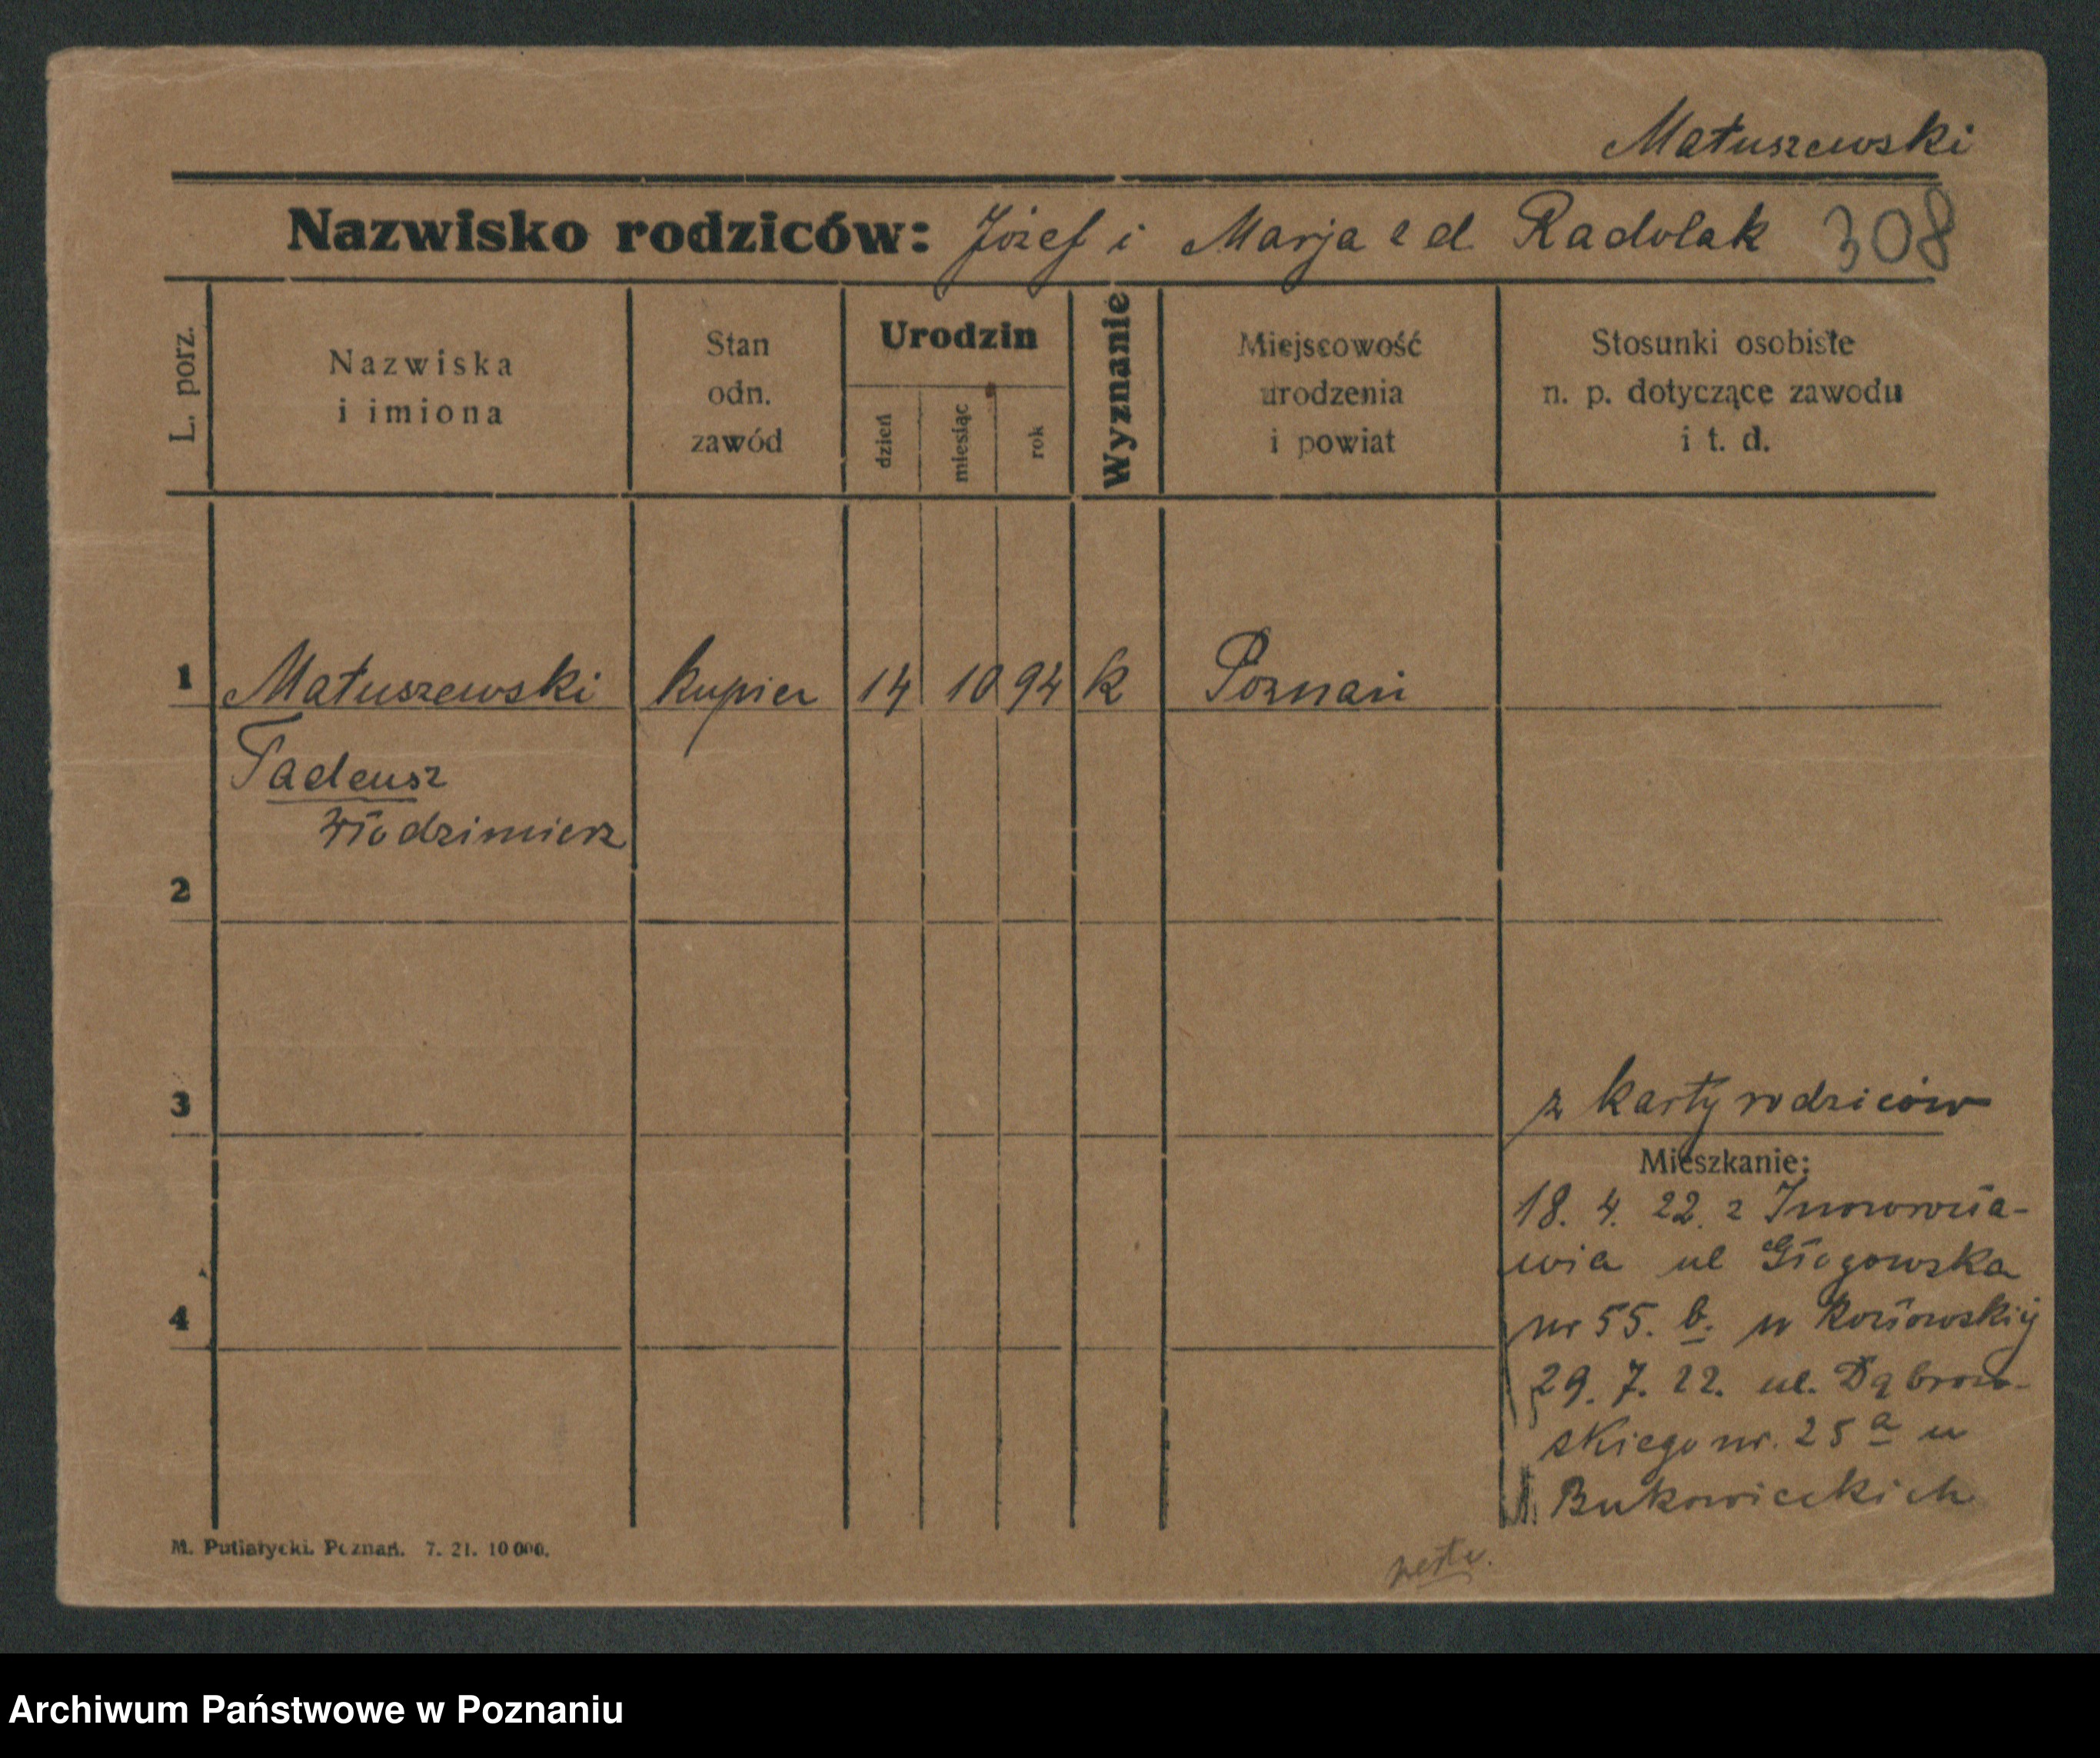 Matuszewski
Nazwisko rodziców: Józef i Marja z d. Radolak 308
L. porz.
Nazwiska
i imiona
Stan
odn.
zawód
Urodzin
dzień
miesiąc
rok
Wyznanie
Miejscowość
urodzenia
i powiat
Stosunki osobiste
n. p. dotyczące zawodu
i t. d.
1 Matuszewski kupiec 14 10 94 k Poznań
Tadeusz
Włodzimierz
2
3
z karty rodziców
Mieszkanie:
18. 4. 22. z Inowrocła-
wia ul Głogowska
4
nr 55. b. u
29. 7. 22. ul. Dąbrow-
skiego nr. 25 a u
Bukowieckich
M. Putiatycki. Poznań. 7. 21. 10 000.
Archiwum Państwowe w Poznaniu